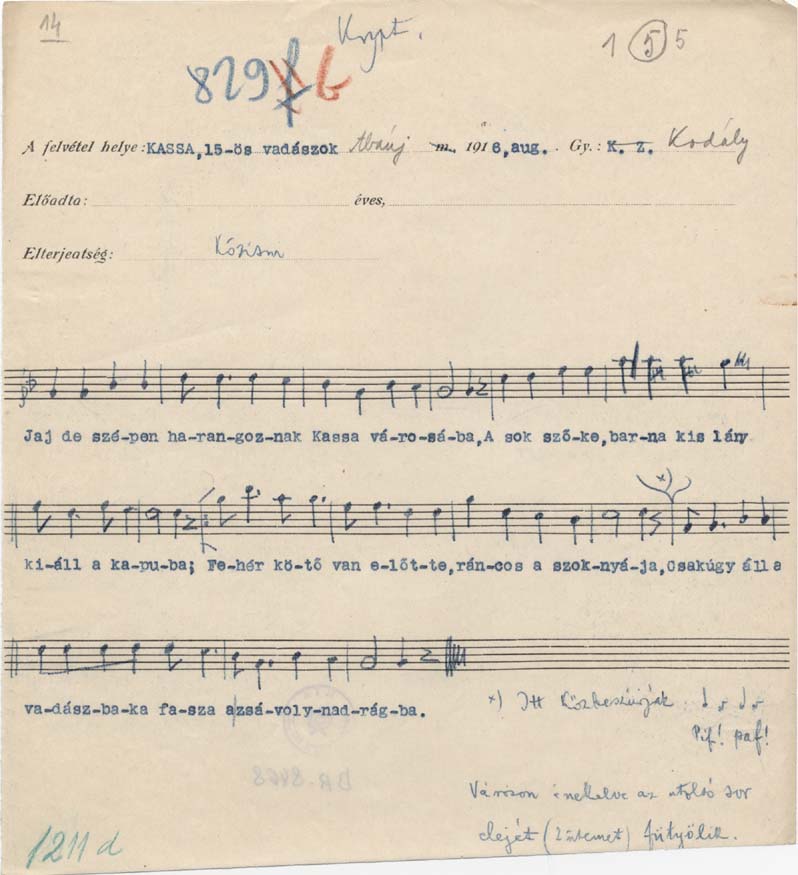 14
Krypt.
1 5 5
829 f b
A felvétel helye: KASSA, 15-ös vadászok Abauj m. 1916, aug. Gy.: K. Z. Kodály
Előadta: éves,
Elterjedtség: Közism
Jaj de szé-pen ha-ran-goz-nak Kassa vá-ro-sá-ba, A sok sző-ke, bar-na kis lány
ki-áll a ka-pu-ba; Fe-hér kö-tő van e-lőt-te, rán-cos a szok-nyá-ja, Csakúgy áll a
va-dász-ba-ka fa-sza a zsá-voly-nad-rág-ba.
x)
x) Itt közbeszúrják
Pif! paf!
DR-8468
Városon énekelve az utolsó sor
elejét (2 ütemet) fütyölik.
1211 d